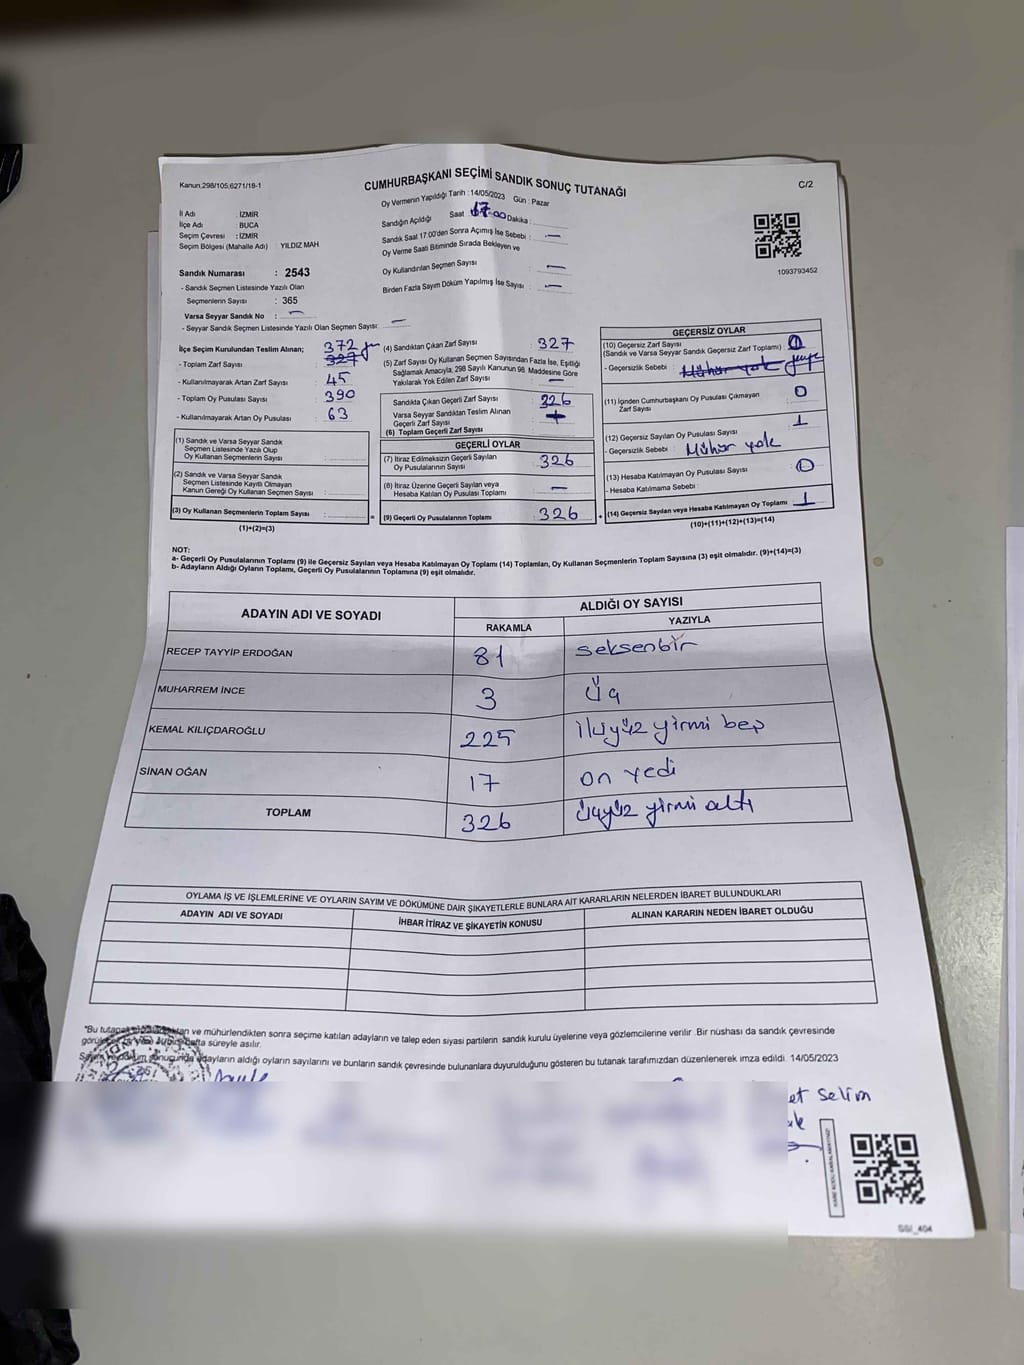 Kanun,298/105;6271/18-1
CUMHURBAŞKANI SEÇİMİ SANDIK SONUÇ TUTANAĞI
C/2
Oy Vermenin Yapıldığı Tarih : 14/05/2023 Gün : Pazar
Sandığın Açıldığı Saat 17:00 Dakika :
Sandık Saat 17:00'den Sonra Açımış İse Sebebi : —
Oy Verme Saati Bitiminde Sırada Bekleyen ve
Oy Kullandırılan Seçmen Sayısı : —
Birden Fazla Sayım Döküm Yapılmış İse Sayısı : —
İl Adı : İZMİR
İlçe Adı : BUCA
Seçim Çevresi : İZMİR
Seçim Bölgesi (Mahalle Adı) : YILDIZ MAH
1093793452
Sandık Numarası : 2543
- Sandık Seçmen Listesinde Yazılı Olan
Seçmenlerin Sayısı : 365
Varsa Seyyar Sandık No : —
- Seyyar Sandık Seçmen Listesinde Yazılı Olan Seçmen Sayısı: —
İlçe Seçim Kurulundan Teslim Alınan; 372
- Toplam Zarf Sayısı : 327
- Kullanılmayarak Artan Zarf Sayısı : 45
- Toplam Oy Pusulası Sayısı : 390
- Kullanılmayarak Artan Oy Pusulası : 63
(1) Sandık ve Varsa Seyyar Sandık
Seçmen Listesinde Yazılı Olup
Oy Kullanan Seçmenlerin Sayısı :
(2) Sandık ve Varsa Seyyar Sandık
Seçmen Listesinde Kayıtlı Olmayan
Kanun Gereği Oy Kullanan Seçmen Sayısı :
(3) Oy Kullanan Seçmenlerin Toplam Sayısı :
(1)+(2)=(3)
(4) Sandıktan Çıkan Zarf Sayısı : 327
(5) Zarf Sayısı Oy Kullanan Seçmen Sayısından Fazla İse, Eşitliği
Sağlamak Amacıyla, 298 Sayılı Kanunun 98. Maddesine Göre
Yakılarak Yok Edilen Zarf Sayısı : —
Sandıkta Çıkan Geçerli Zarf Sayısı : 326
Varsa Seyyar Sandıktan Teslim Alınan
Geçerli Zarf Sayısı
(6) Toplam Geçerli Zarf Sayısı
GEÇERLİ OYLAR
(7) İtiraz Edilmeksizin Geçerli Sayılan
Oy Pusulalarının Sayısı : 326
(8) İtiraz Üzerine Geçerli Sayılan veya
Hesaba Katılan Oy Pusulası Toplamı : —
(9) Geçerli Oy Pusulalarının Toplamı : 326
GEÇERSİZ OYLAR
(10) Geçersiz Zarf Sayısı
(Sandık ve Varsa Seyyar Sandık Geçersiz Zarf Toplamı) :
- Geçersizlik Sebebi : Mühür yok
(11) İçinden Cumhurbaşkanı Oy Pusulası Çıkmayan
Zarf Sayısı : 0
(12) Geçersiz Sayılan Oy Pusulası Sayısı : 1
- Geçersizlik Sebebi : Mühür yok
(13) Hesaba Katılmayan Oy Pusulası Sayısı : 0
- Hesaba Katılmama Sebebi :
(14) Geçersiz Sayılan veya Hesaba Katılmayan Oy Toplamı : 1
(10)+(11)+(12)+(13)=(14)
NOT:
a- Geçerli Oy Pusulalarının Toplamı (9) ile Geçersiz Sayılan veya Hesaba Katılmayan Oy Toplamı (14) Toplamları, Oy Kullanan Seçmenlerin Toplam Sayısına (3) eşit olmalıdır. (9)+(14)=(3)
b- Adayların Aldığı Oyların Toplamı, Geçerli Oy Pusulalarının Toplamına (9) eşit olmalıdır.
ADAYIN ADI VE SOYADI
ALDIĞI OY SAYISI
RAKAMLA YAZIYLA
RECEP TAYYİP ERDOĞAN 81 seksenbir
MUHARREM İNCE 3 üç
KEMAL KILIÇDAROĞLU 225 ikiyüz yirmi beş
SİNAN OĞAN 17 on yedi
TOPLAM 326 üçyüz yirmi altı
OYLAMA İŞ VE İŞLEMLERİNE VE OYLARIN SAYIM VE DÖKÜMÜNE DAİR ŞİKAYETLERLE BUNLARA AİT KARARLARIN NELERDEN İBARET BULUNDUKLARI
ADAYIN ADI VE SOYADI İHBAR İTİRAZ VE ŞİKAYETİN KONUSU ALINAN KARARIN NEDEN İBARET OLDUĞU
"Bu tutanak ve mühürlendikten sonra seçime katılan adayların ve talep eden siyasi partilerin sandık kurulu üyelerine veya gözlemcilerine verilir. Bir nüshası da sandık çevresinde
hafta süreyle asılır.
adayların aldığı oyların sayılarını ve bunların sandık çevresinde bulunanlara duyurulduğunu gösteren bu tutanak tarafımızdan düzenlenerek imza edildi. 14/05/2023
Selim
SSI_404